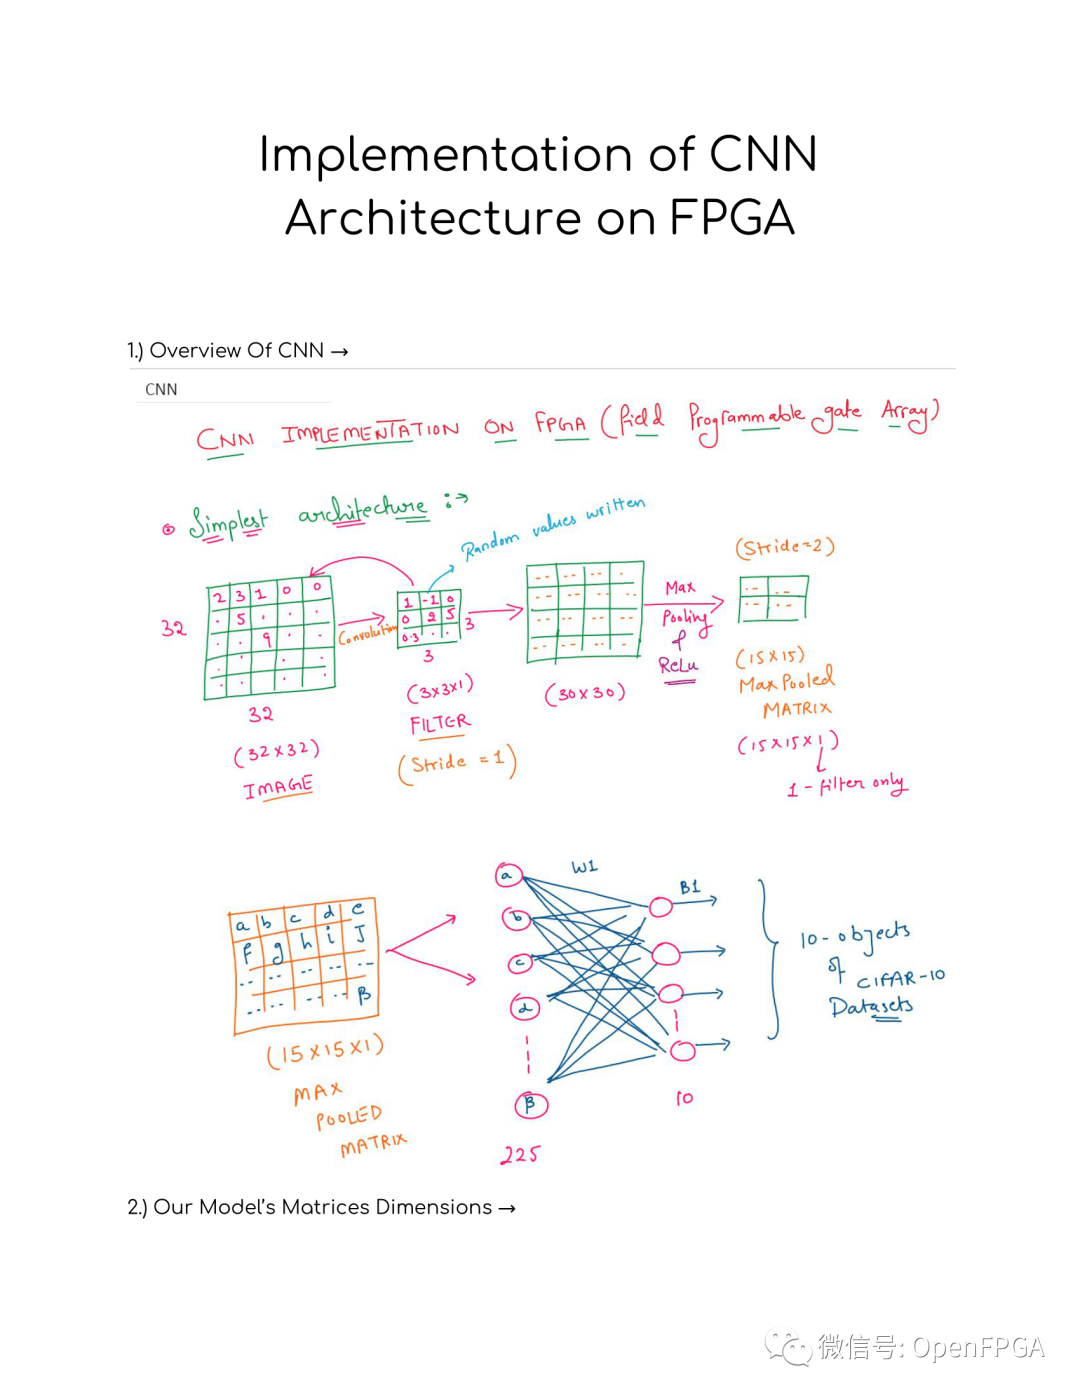 Implementation of CNN
Architecture on FPGA
1.) Overview Of CNN →
CNN
CNN IMPLEMENTATION ON FPGA (field Programmable gate Array)
Simplest architecture :→
Random values written
(Stride=2)
2 3 1 0 0
. 5 . . .
. . 9 . .
. . .
. . . .
32
32
(32×32)
IMAGE
Convolution
1 -1 0
0 2 5
0.3 . .
3
3
(3×3×1)
FILTER
(Stride = 1)
-- -- -- .
-- -- -- --
-- -- -- --
-- -- -- --
(30×30)
Max
Pooling
&
ReLu
-- --
-- --
(15×15)
Max Pooled
MATRIX
(15×15×1)
1 - filter only
a b c d e
f g h i J
-- -- -- -- --
-- -- -- -- β
(15×15×1)
MAX
POOLED
MATRIX
a
b
c
d
β
225
W1
B1
10
10-objects
of CIFAR-10
Datasets
2.) Our Model's Matrices Dimensions →
微信号: OpenFPGA